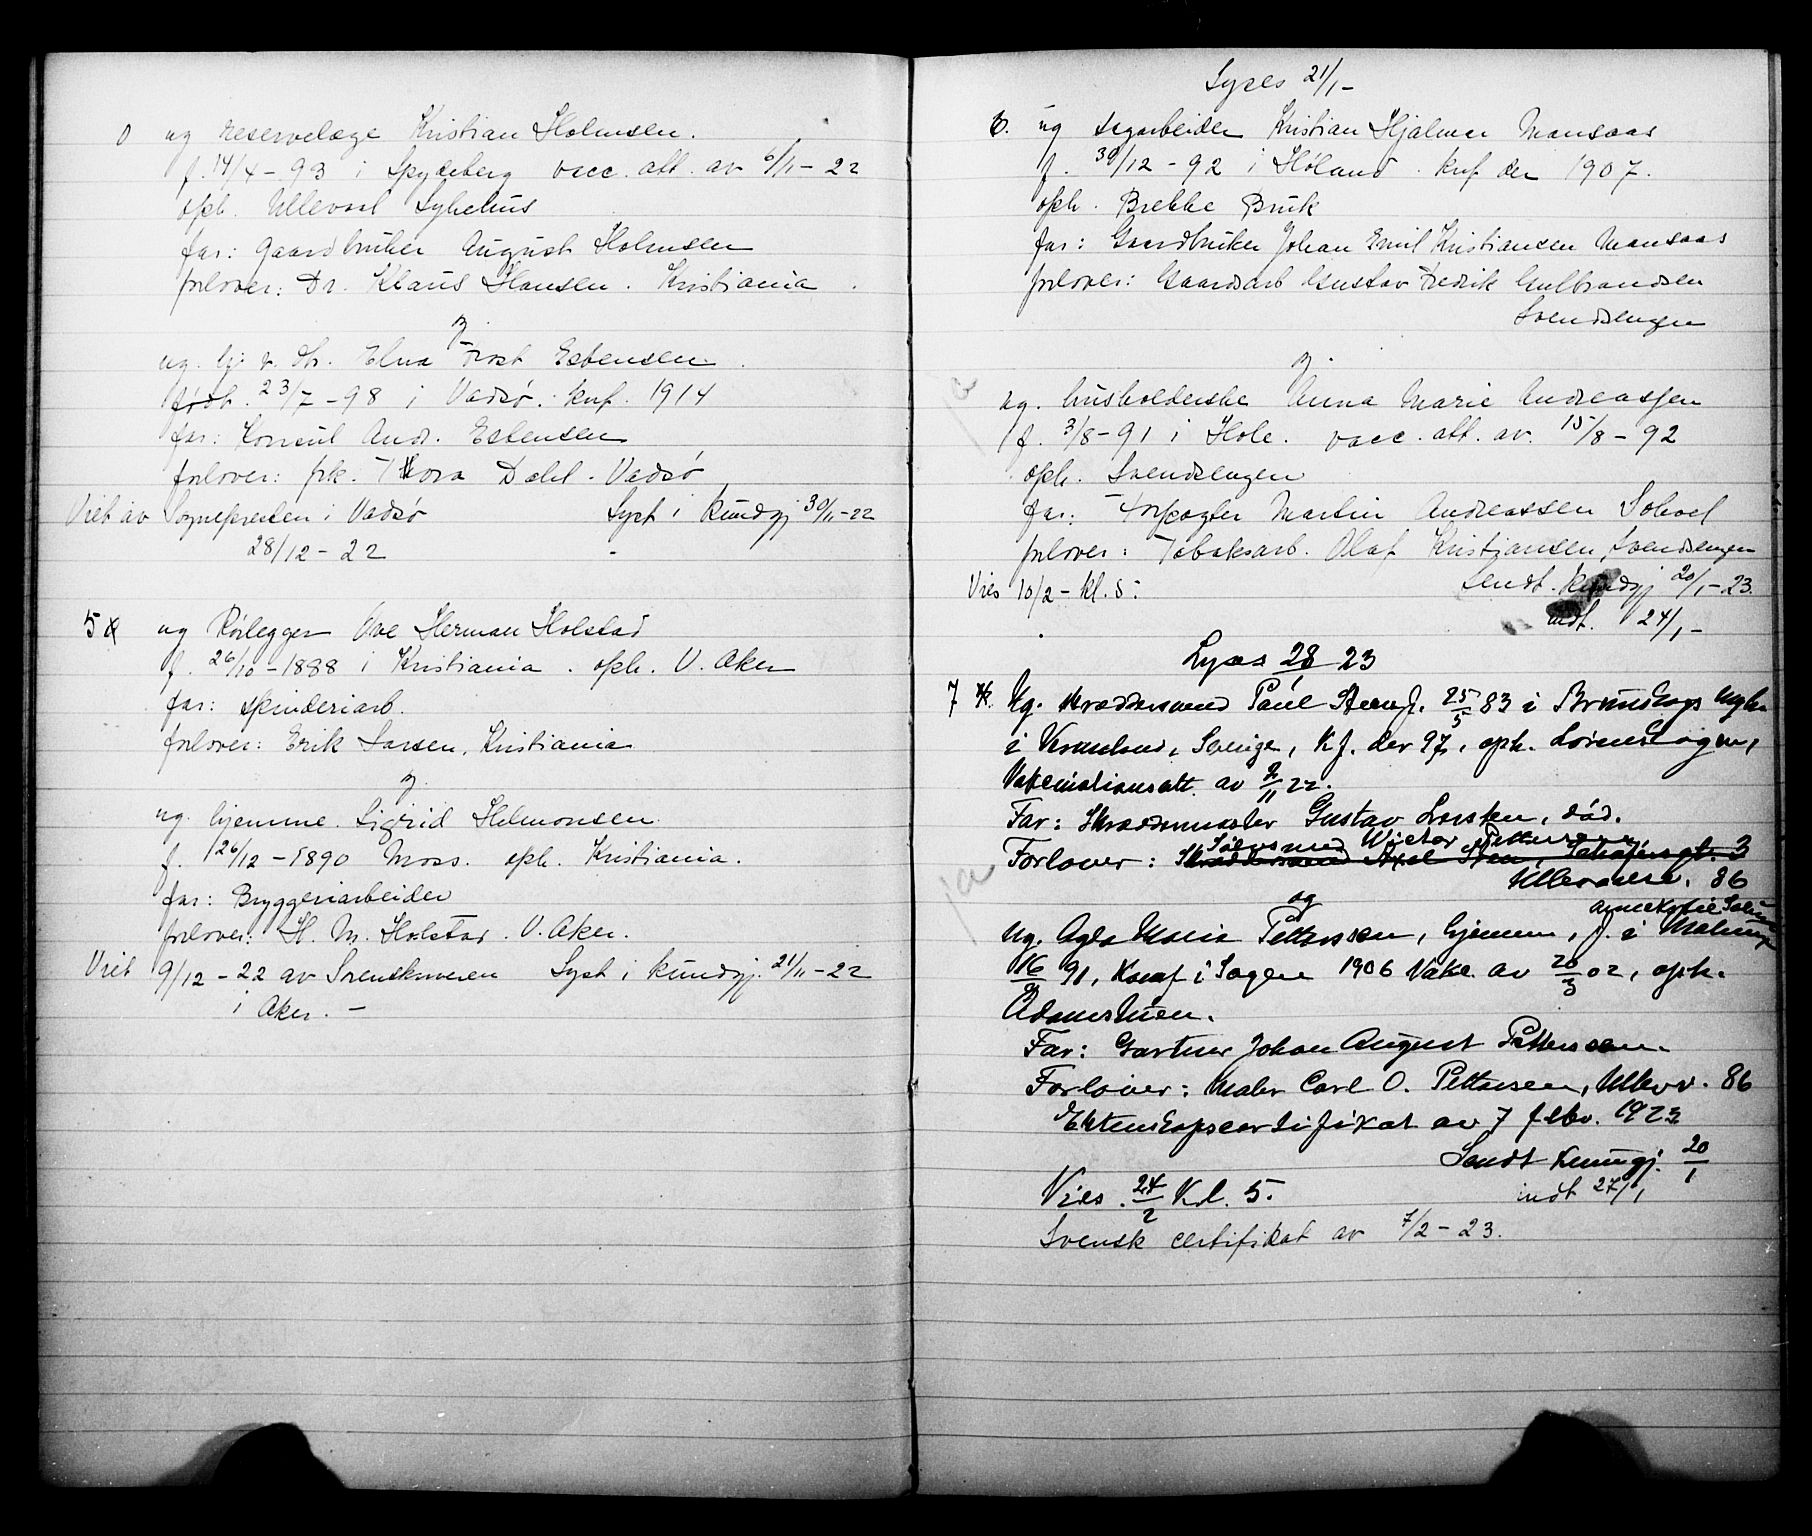 0 ug reservelæge Kristian Holmsen.
f. 14/4 - 93 i Spydeberg vacc. att. av 6/11 - 22
oph. Ullevaal Sykehus
far: Gaardbruker August Holmsen
forlover: Dr. Klaus Hansen. Kristiania.
og
ug. hj. v. Elna Frost Esbensen.
født. 23/7 - 98 i Vadsø. knf. 1914
far: Konsul Andr. Esbensen
forlover: frk. Thora Dahl. Vadsø
Viet av Sognepresten i Vadsø Lyst i Kundgj 30/11 - 22
28/12 - 22
5 ug Rørlegger Ove Herman Holstad
f. 26/10 - 1888 i Kristiania. oph. V. Aker
far: spinderiarb.
forlover: Erik Larsen, Kristiania
og
ug. hjemme. Sigrid Helmonsen.
f. 26/12 - 1890 Moss. oph. Kristiania.
far: Bryggeriarbeider
forlover: H. M. Holstad. V. Aker.
Viet 9/12 - 22 av Sorenskriveren Lyst i kundgj. 21/11 - 22
i Aker. -
Lyses 21/1 -
6. ug sagarbeider Kristian Hjalmar Mansaas
f. 30/12 - 92 i Høland. knf der 1907.
oph. Brekke Bruk
far: Gaardbruker Johan Emil Kristiansen Mansaas
forlover: Gaardsarb Gustav Fredrik Gulbrandsen
Svendsengen
og
ja
ug. husholderske Anna Marie Andreassen
f. 3/8 - 91 i Hole. vacc. att. av. 15/8 - 92
oph. Svendsengen
far: Forpagter Martin Andreassen
forlover: Tobaksarb. Olaf Kristiansen, Svendsengen
Vies 10/2 - kl. 5: Sendt. Kundgj 20/1 - 23.
indt. 24/1 -
Lyses 28/1 23
7 Ug. skræddersvend Paul Steen f. 25/5 83 i Brunskogs
i Vermland, Sverige, K f. der 97, oph. Lørenskogen,
Vakcinationsatt. av 2/11 22.
Far: Skræddermester Gustav Larsten, død.
Sølvsmed Victor Pettersen
Forlover: Skræddersvend Axel Sten, 3
Ullevaalsv. 86
og
ja
annekset til
Ug. Agda Maria Pettersson, hjemme, f. i
16/ 91, Konf i Sagene 1906 Vakc. av 20/3 02, oph.
Adamstuen.
Far: Gartner Johan August Pettersson.
Forlover: Maler Carl O. Pettersen, Ullev. 86
Ektenskapscertifikat av 7 febr. 1923
Sendt Kungj. 20/1
Vies. 24/2 Kl. 5. indt 27/1
Svensk certifikat av 7/2 - 23.